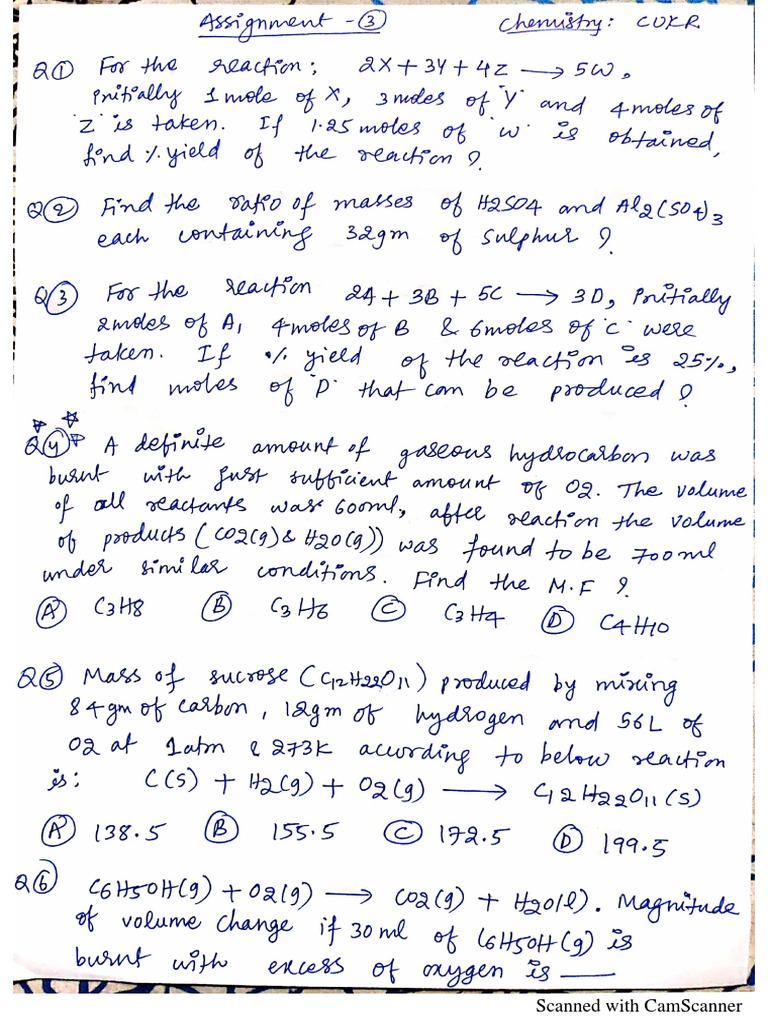 Assignment - ③ Chemistry: CUKR
Q① For the reaction; 2X + 3Y + 4Z → 5W,
Initially 1 mole of X, 3 moles of 'Y' and 4 moles of
'Z' is taken. If 1.25 moles of 'W' is obtained,
find % yield of the reaction ?
Q② Find the ratio of masses of H2SO4 and Al2(SO4)3
each containing 32gm of Sulphur ?
Q③ For the reaction 2A + 3B + 5C → 3D, Initially
2moles of A, 4moles of B & 6moles of 'C' were
taken. If % yield of the reaction is 25%,
find moles of 'D' that can be produced ?
Q④ A definite amount of gaseous hydrocarbon was
burnt with just sufficient amount of O2. The volume
of all reactants was 600ml, after reaction the volume
of products (CO2(g) & H2O(g)) was found to be 700ml
under similar conditions. Find the M.F ?
Ⓐ C3H8 Ⓑ C3H6 Ⓒ C3H4 Ⓓ C4H10
Q⑤ Mass of sucrose (C12H22O11) produced by mixing
84gm of carbon, 12gm of hydrogen and 56L of
O2 at 1atm & 273K according to below reaction
is: C(s) + H2(g) + O2(g) → C12H22O11(s)
Ⓐ 138.5 Ⓑ 155.5 Ⓒ 172.5 Ⓓ 199.5
Q⑥ C6H5OH(g) + O2(g) → CO2(g) + H2O(l). Magnitude
of volume change if 30ml of C6H5OH(g) is
burnt with excess of oxygen is ——
Scanned with CamScanner